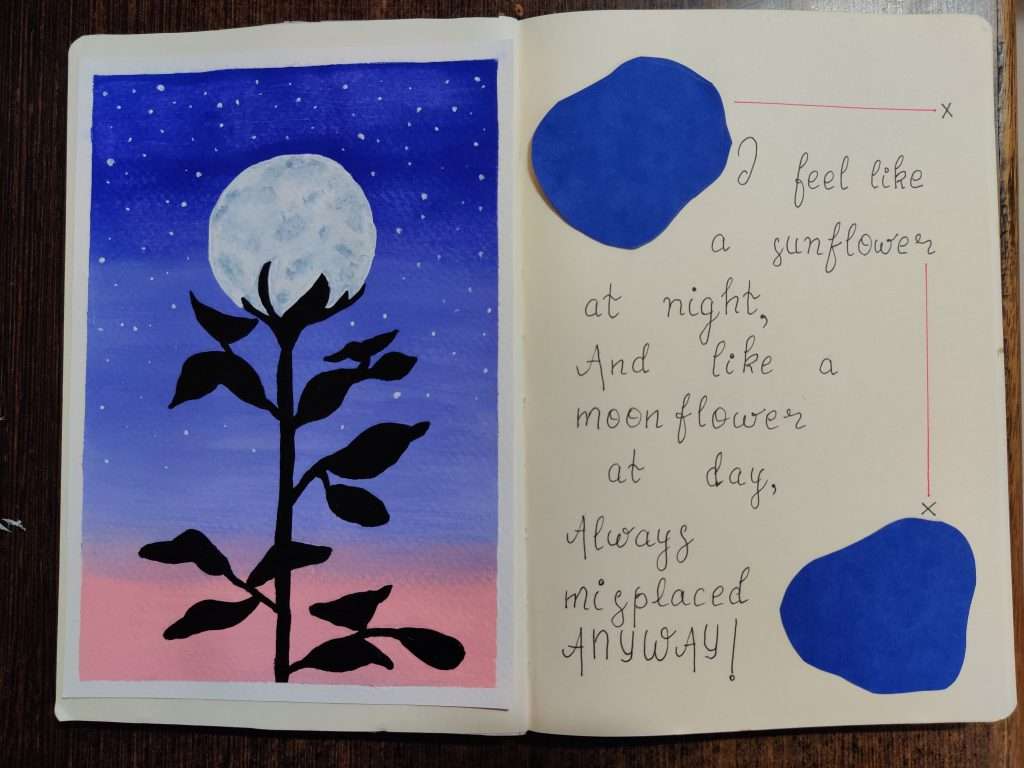 I feel like
a sunflower
at night,
And like a
moonflower
at day,
Always
misplaced
ANYWAY!